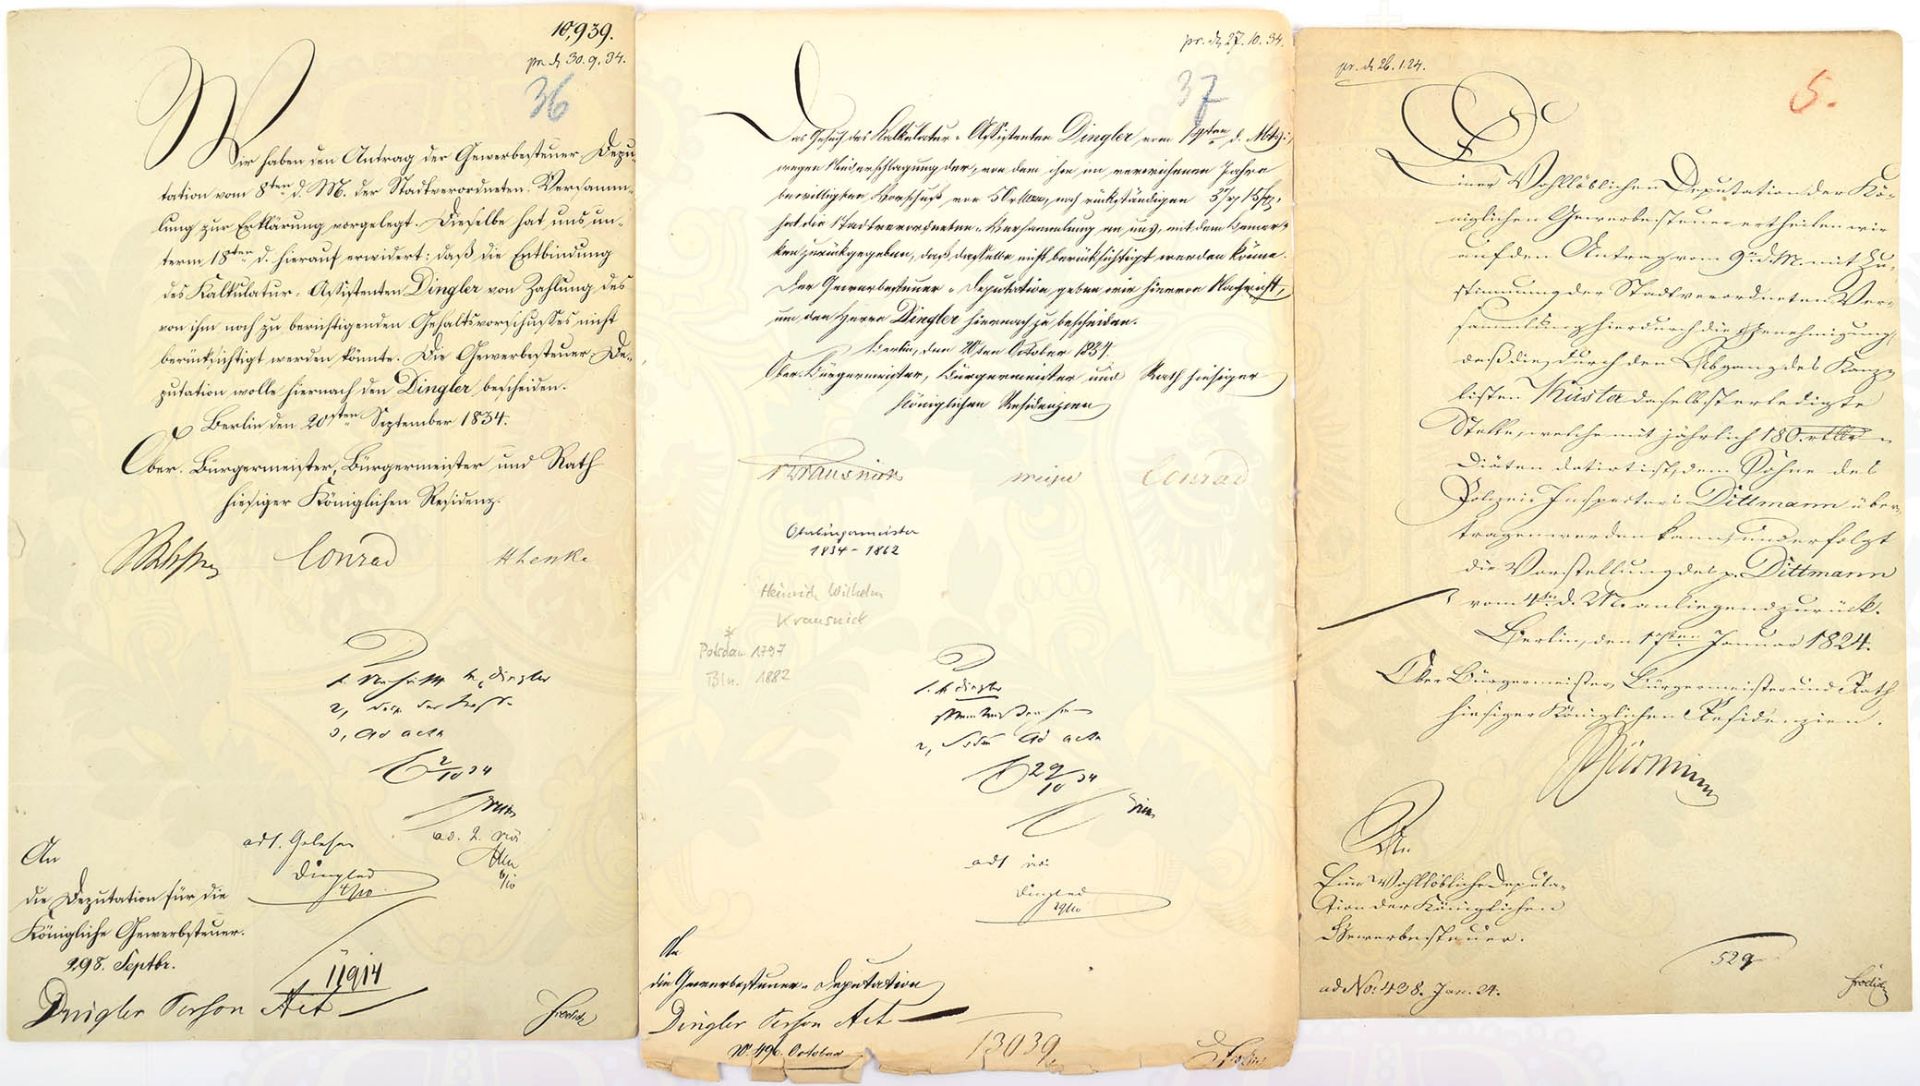 10,939.
pr. d. 30. 9. 34.
36
Wir haben den Antrag der Gewerbesteuer Depu-
tation vom 8ten d. M. der Stadtverordneten-Versamm-
lung zur Erklärung vorgelegt. Dieselbe hat uns un-
term 18ten d. hierauf erwidert: daß die Entbindung
des Kalkulatur-Assistenten Dingler von Zahlung des
von ihm noch zu berichtigenden Gehaltsvorschusses nicht
berücksichtigt werden könnte. Die Gewerbesteuer De-
putation wolle hiernach den Dingler bescheiden.
Berlin den 20sten September 1834.
Ober-Bürgermeister, Bürgermeister und Rath
hiesiger Königlichen Residenz.
Conrad
Dingler
3, ad acta
2/10 34
adt. Gelesen
Dingler
An
die Deputation für die
Königliche Gewerbsteuer.
298. Septbr.
11914
Dingler Person Act
pr. d. 27. 10. 34.
37
Das Gesuch des Kalkulatur-Assistenten Dingler vom d. Mts.,
wegen Niederschlagung der, von dem ihm im verwichenen Jahre
bewilligten Vorschuß von 50 noch rückständigen
hat die Stadtverordneten-Versammlung an uns, mit dem Bemer-
ken zurückgegeben, daß dasselbe nicht berücksichtigt werden könne.
Der Gewerbesteuer-Deputation geben wir hiervon Nachricht,
um den Herrn Dingler hiernach zu bescheiden.
Berlin, den 20ten October 1834.
Ober-Bürgermeister, Bürgermeister und Rath hiesiger
Königlichen Residenzien
Krausnick
Conrad
Oberbürgermeister
1834 - 1862
Heinrich Wilhelm
Krausnick
* Potsdam 1797
Bln. 1882
Dingler
2, ad acta
29/10 34
Dingler
29/10
An
die Gewerbesteuer-Deputation
Dingler Person Act
N. 496. October
13039
pr. d. 26. 1. 24.
5.
Einer Wohllöblichen Deputation der Kö-
niglichen Gewerbesteuer ertheilen wir
auf den Antrag vom 9n d. M. mit Zu-
stimmung der Stadtverordneten Ver-
sammlung hierdurch die Genehmigung,
daß die, durch den Abgang des Kanz-
listen Kusta daselbst erledigte
Stelle, welche mit jährlich 180 rtlr
Diäten dotirt ist, dem Sohne des
Polizei-Inspectors Dittmann über-
tragen werden kann, und erfolgt
die Vorstellung des p. Dittmann
vom 4ten d. M. anliegend zurück.
Berlin, den 17ten Januar 1824.
Ober Bürgermeister, Bürgermeister und Rath
hiesiger Königlichen Residenzien.
An
Eine Wohllöbliche Deputa-
tion der Königlichen
Gewerbesteuer.
529
ad No: 438. Jan. 24.